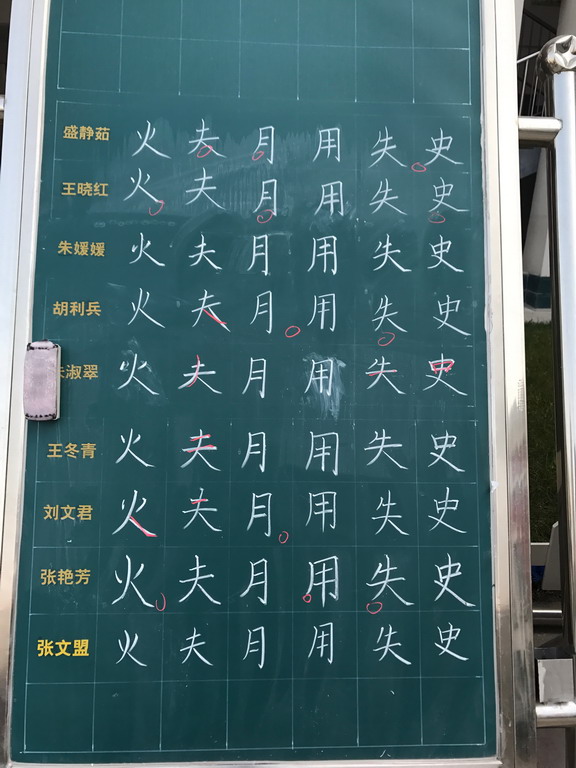 盛静茹 火 夫 月 用 失 史
王晓红 火 夫 月 用 失 史
朱媛媛 火 夫 月 用 失 史
胡利兵 火 夫 月 用 失 史
淑翠 火 夫 月 用 失 史
王冬青 火 夫 月 用 失 史
刘文君 火 夫 月 用 失 史
张艳芳 火 夫 月 用 失 史
张文盟 火 夫 月 用 失 史